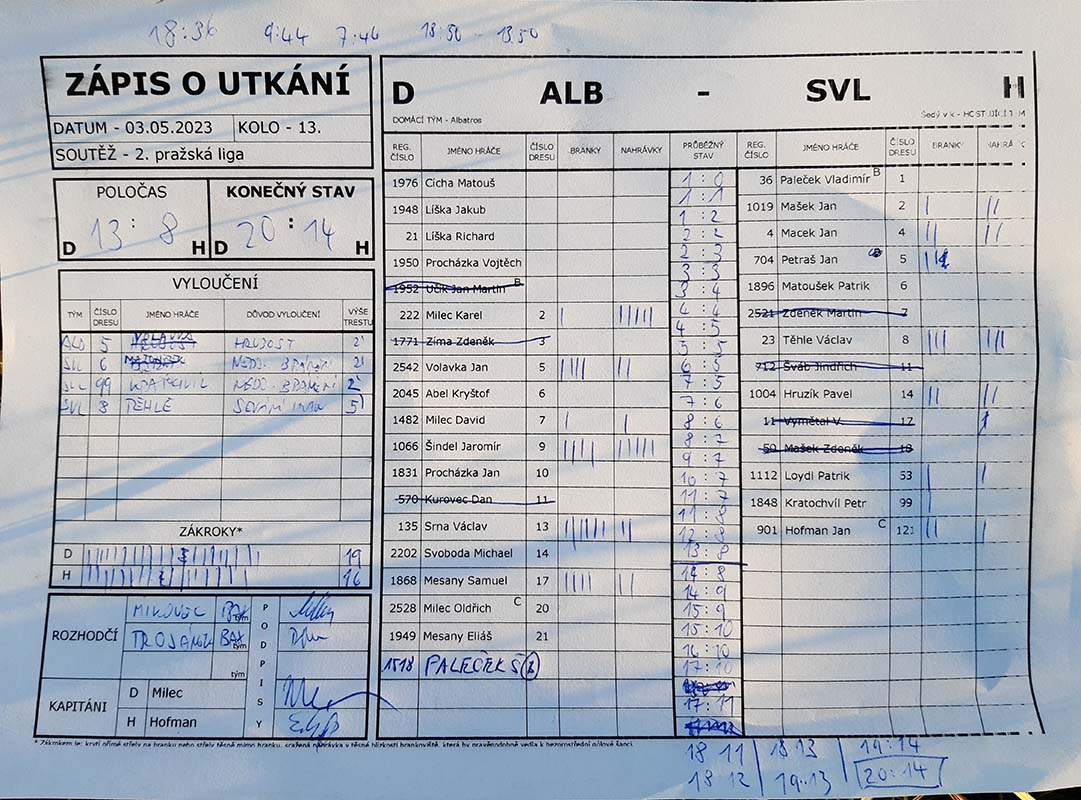 18:36 9:44 7:46 18:50 - 13.50
ZÁPIS O UTKÁNÍ
DATUM - 03.05.2023 KOLO - 13.
SOUTĚŽ - 2. pražská liga
POLOČAS KONEČNÝ STAV
D 13 8 H D 20 : 14 H
VYLOUČENÍ
TÝM ČÍSLO DRESU JMÉNO HRÁČE DŮVOD VYLOUČENÍ VÝŠE TRESTU
5 VOLAVKA HRUBOST 2'
6 2'
99 2'
SVL 8 TĚHLE 5'
ZÁKROKY*
D 19
H 16
ROZHODČÍ
MIKOVEC tým
TROJANEK tým
tým
PODPISY
KAPITÁNI
D Milec
H Hofman
D ALB - SVL H
DOMÁCÍ TÝM - Albatros
REG. ČÍSLO JMÉNO HRÁČE ČÍSLO DRESU BRANKY NAHRÁVKY PRŮBĚŽNÝ STAV REG. ČÍSLO JMÉNO HRÁČE ČÍSLO DRESU
1976 Cícha Matouš
1948 Líška Jakub
21 Líška Richard
1950 Procházka Vojtěch
1952 Učík Jan Martin B
222 Milec Karel 2
1771 Zíma Zdeněk 3
2542 Volavka Jan 5
2045 Abel Kryštof 6
1482 Milec David 7
1066 Šindel Jaromír 9
1831 Procházka Jan 10
570 Kurovec Dan 11
135 Srna Václav 13
2202 Svoboda Michael 14
1868 Mesany Samuel 17
2528 Milec Oldřich C 20
1949 Mesany Eliáš 21
1518 PALEČEK Š
1:0
1:1
1:2
2:2
2:3
3:3
3:4
4:4
4:5
5:5
6:5
7:5
7:6
8:6
8:7
9:7
10:7
11:7
11:8
12:8
13:8
14:8
14:9
15:9
15:10
16:10
17:10
17:11
36 Paleček Vladimír B 1
1019 Mašek Jan 2
4 Macek Jan 4
704 Petraš Jan 5
1896 Matoušek Patrik 6
2521 Zdeněk Martin 7
23 Těhle Václav 8
712 Šváb Jindřich 11
1004 Hruzík Pavel 14
11 Vymětal V. 17
50 Mašek Zdeněk 18
1112 Loydl Patrik 53
1848 Kratochvíl Petr 99
901 Hofman Jan C 121
18 11 18 13 19:14
18 12 19:13 20:14